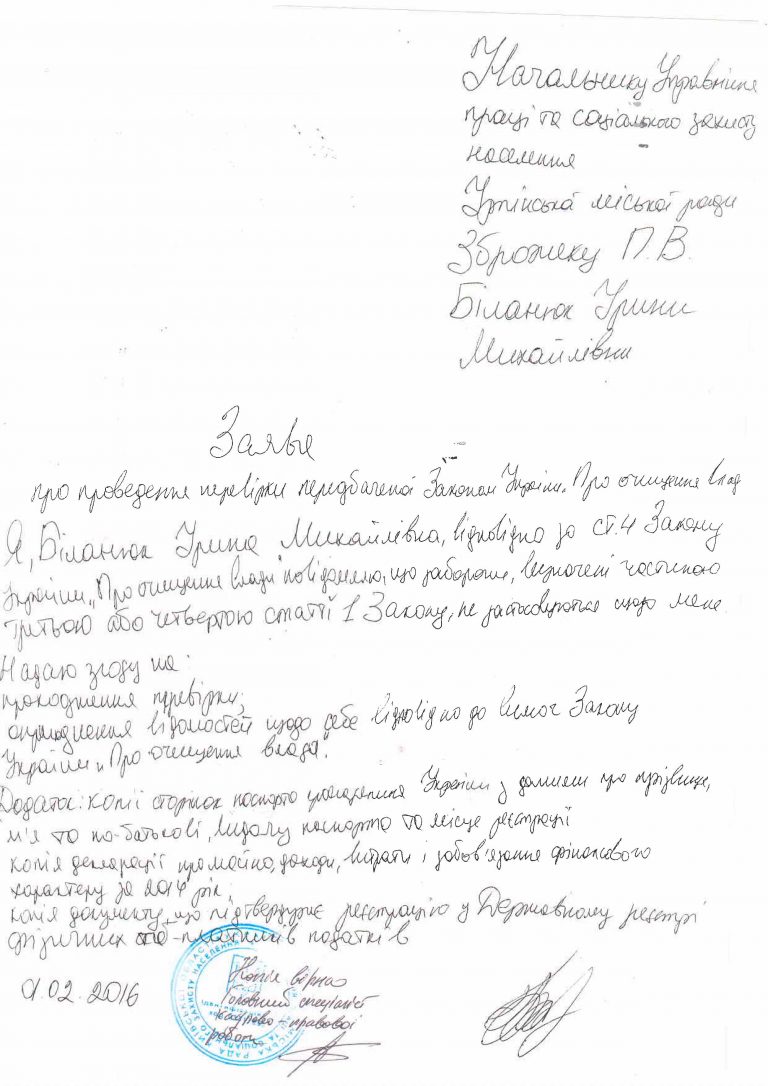 Начальнику Управління
праці та соціального захисту
населення
Ірпінської міської ради
Зброжеку П.В.
Біланюк Ірини
Михайлівни
Заява
про проведення перевірки передбаченої Законом України „Про очищення влад
Я, Біланюк Ірина Михайлівна, відповідно до ст.4 Закону
України „Про очищення влади" повідомляю, що заборони, визначені частиною
третьою або четвертою статті 1 Закону, не застосовуються щодо мене
Надаю згоду на:
проходження перевірки;
оприлюднення відомостей щодо себе відповідно до вимог Закону
України „Про очищення влади".
Додаток: копії сторінок паспорта громадянина України з даними про прізвище,
м'я та по-батькові, видачу паспорта та місце реєстрації
копія декларації про майно, доходи, витрати і зобов'язання фінансового
характеру за 2014 рік;
копія документу, що підтверджує реєстрацію у Державному реєстрі
фізичних платників податків
01.02.2016
Копія вірна
Головний спеціаліст
кадрово-правової
роботи